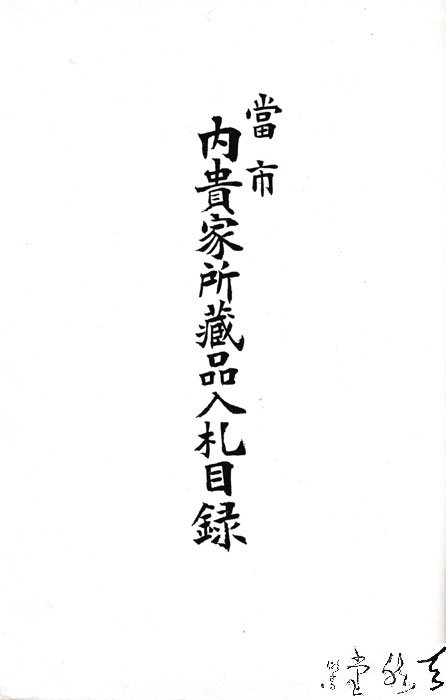 當市
内貴家所藏品入札目録